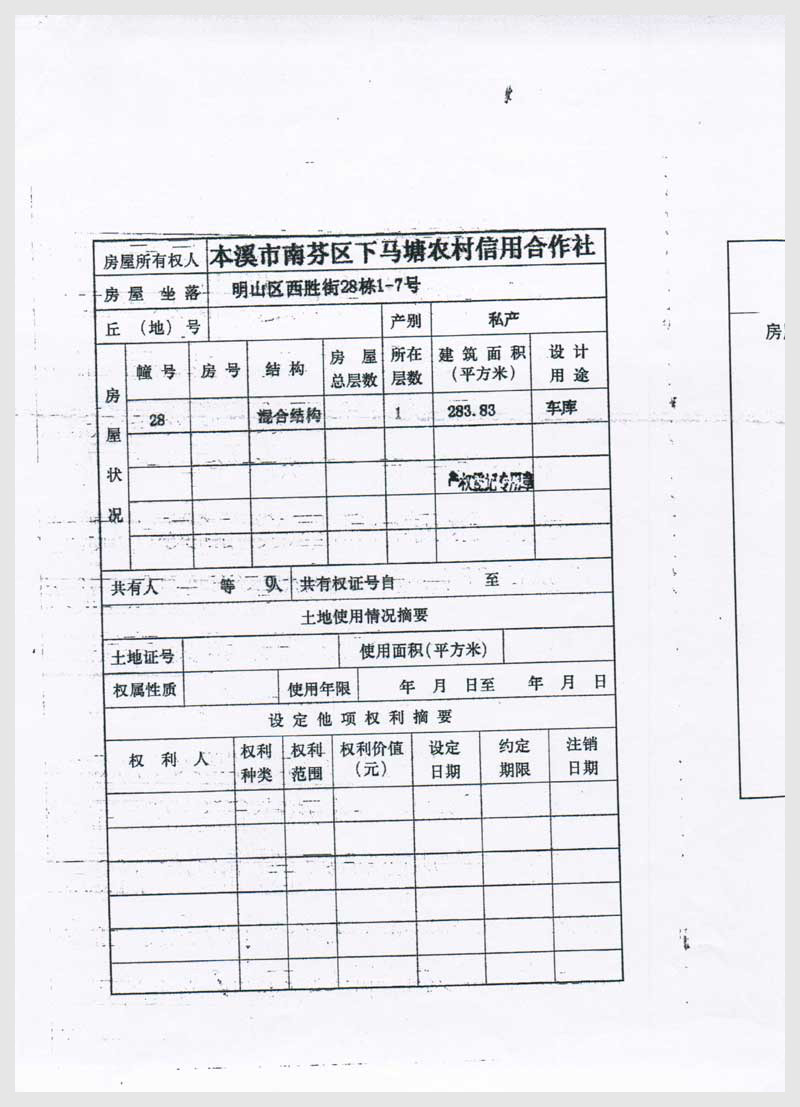 房屋所有权人 本溪市南芬区下马塘农村信用合作社
房屋坐落 明山区西胜街28栋1-7号
丘(地)号 产别 私产
房屋状况
幢号 房号 结构 房屋总层数 所在层数 建筑面积(平方米) 设计用途
28 混合结构 1 283.83 车库
产权登记专用章
共有人 等 0人 共有权证号自 至
土地使用情况摘要
土地证号 使用面积(平方米)
权属性质 使用年限 年 月 日至 年 月 日
设定他项权利摘要
权利人 权利种类 权利范围 权利价值(元) 设定日期 约定期限 注销日期
房